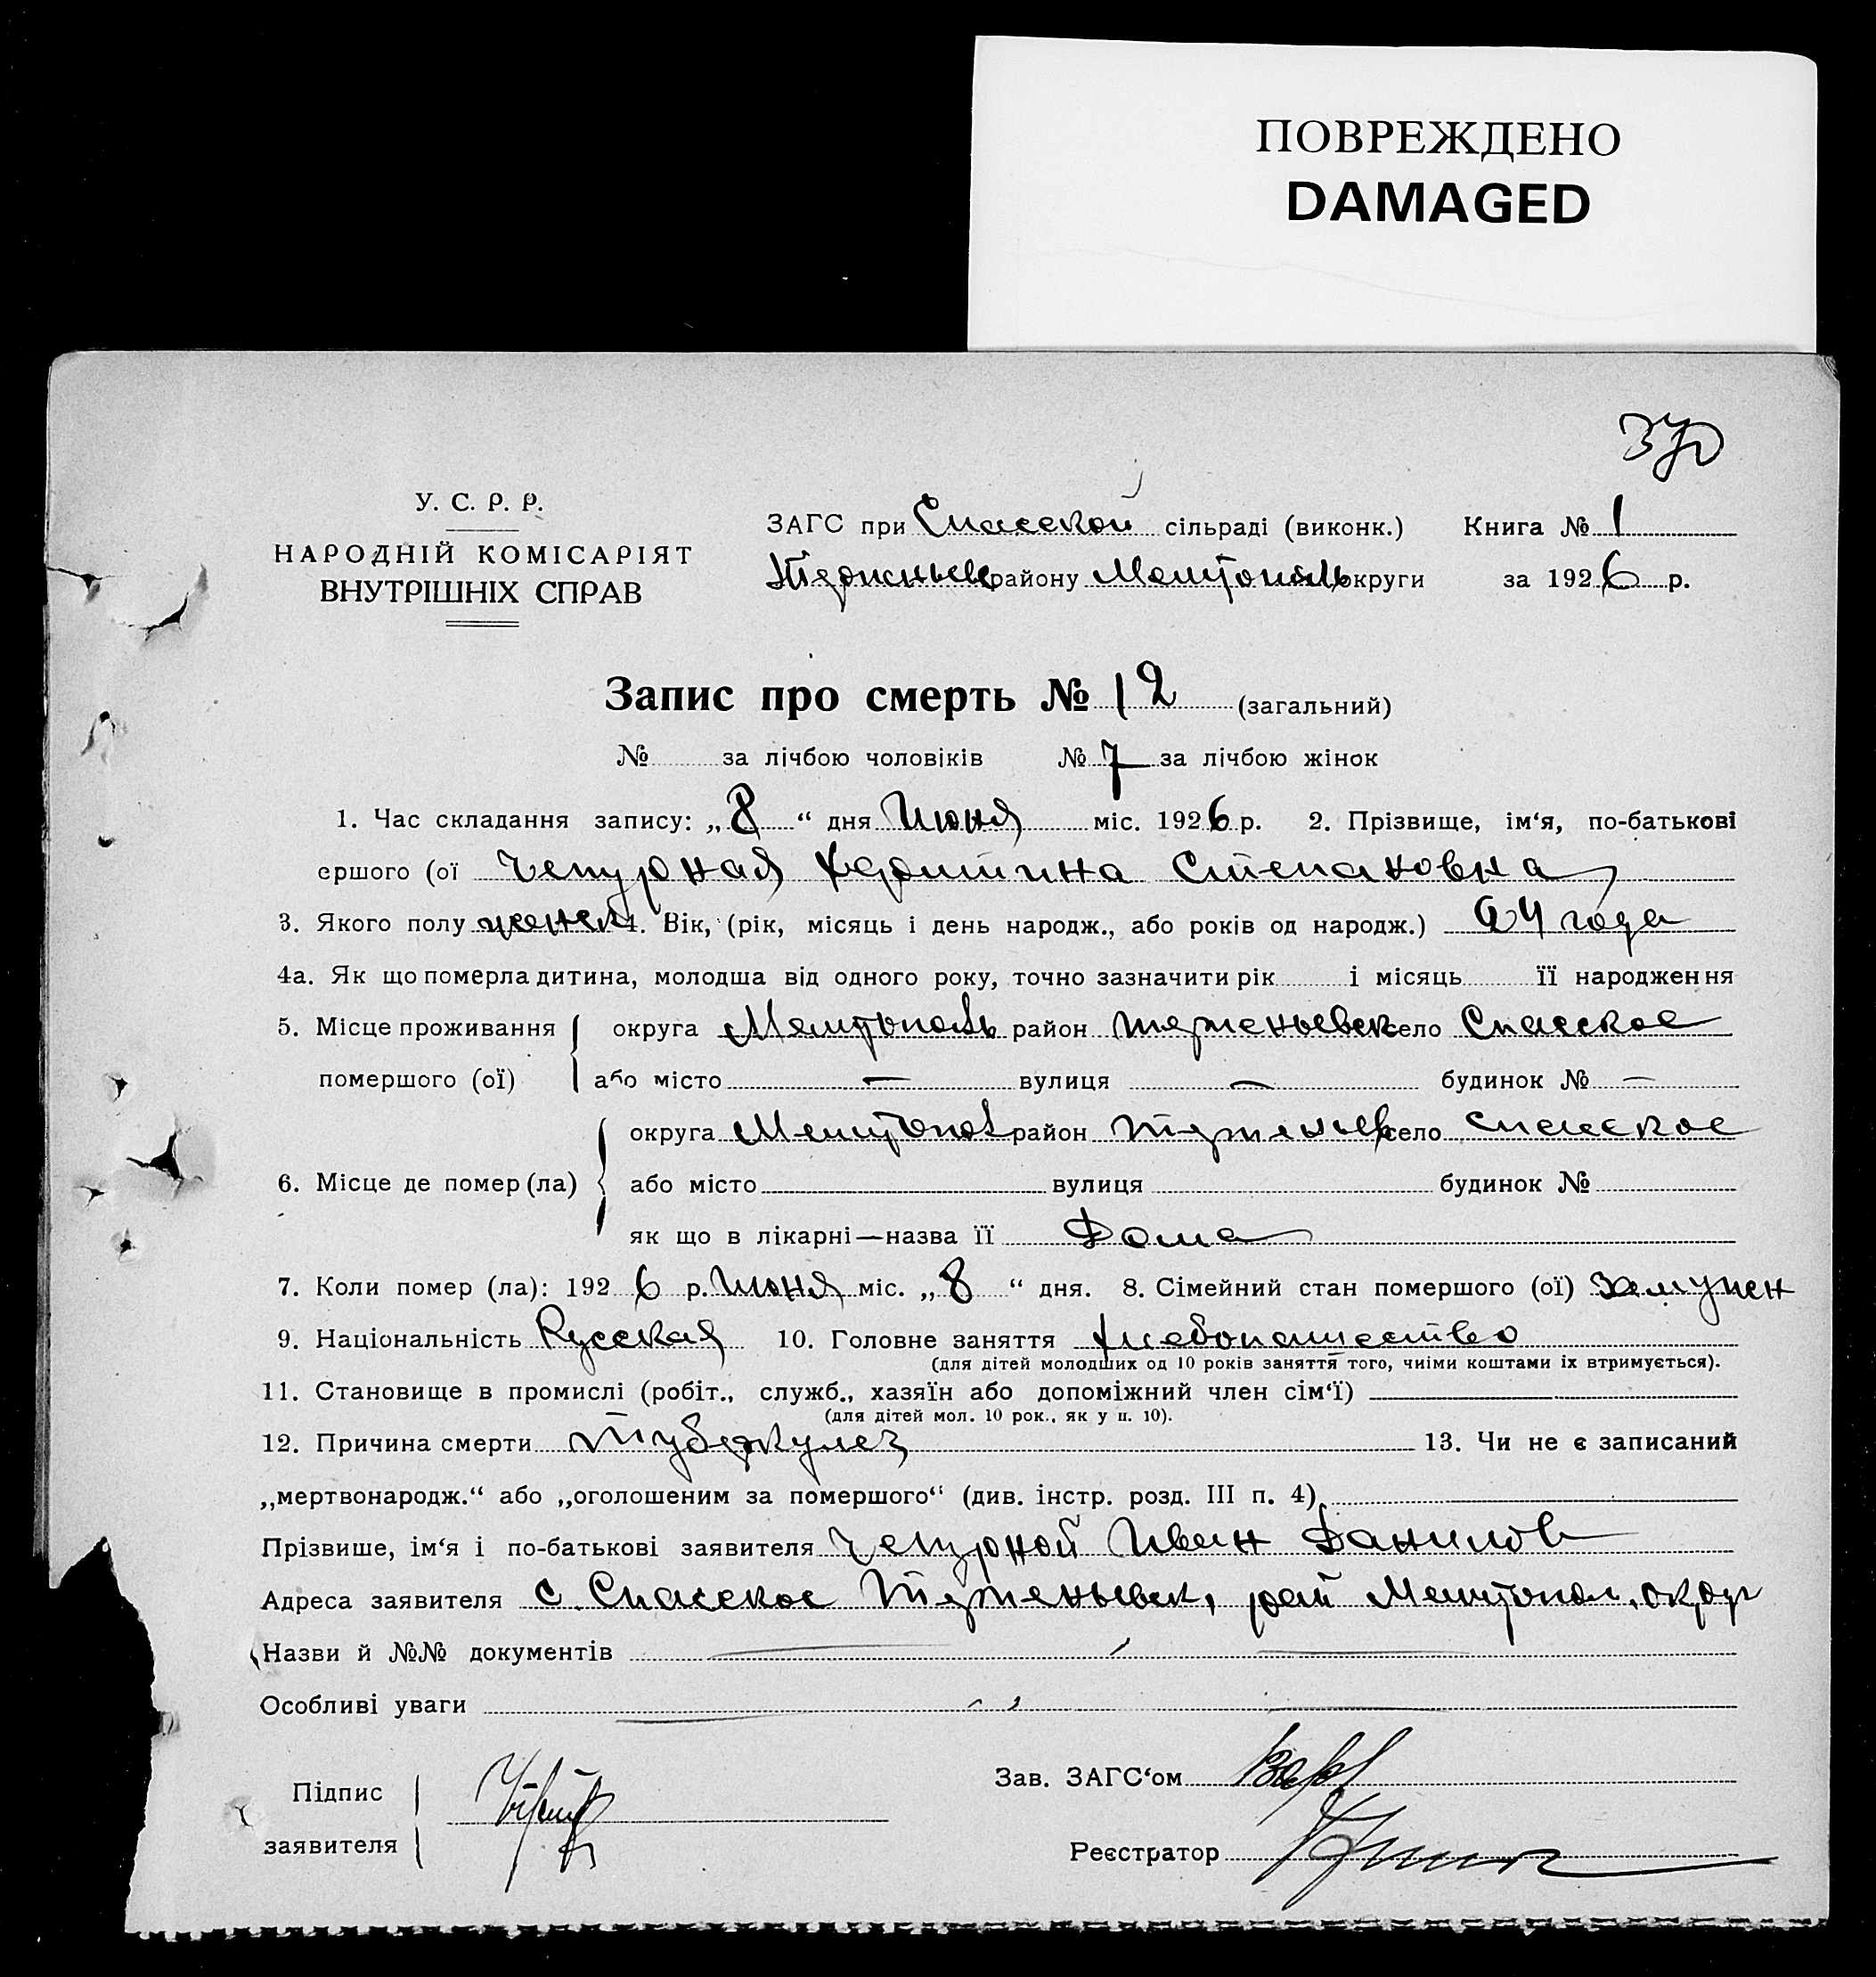 ПОВРЕЖДЕНО
DAMAGED
370
У. С. Р. Р.
НАРОДНІЙ КОМІСАРІЯТ
ВНУТРІШНІХ СПРАВ
ЗАГС при Спасской сільраді (виконк.) Книга № 1
району Мелитополь округи за 1926 р.
Запис про смерть № 12 (загальний)
№ за лічбою чоловіків № 7 за лічбою жінок
1. Час складання запису: „8“ дня Июня міс. 1926 р. 2. Прізвище, ім‘я, по-батькові
ершого (ої Чепурная Харитина Степановна
3. Якого полу женск 4. Вік, (рік, місяць і день народж., або років од народж.) 24 года
4а. Як що померла дитина, молодша від одного року, точно зазначити рік і місяць її народження
5. Місце проживання округа Мелитополь район терпеньевск село Спасское
помершого (ої) або місто — вулиця — будинок № —
округа Мелитопол район терпеньев село Спасское
6. Місце де помер (ла) або місто вулиця будинок №
як що в лікарні—назва її Дома
7. Коли помер (ла): 1926 р. Июня міс. „8“ дня. 8. Сімейний стан помершого (ої) замужен
9. Національність Русская 10. Головне заняття хлебопашество
(для дітей молодших од 10 років заняття того, чиїми коштами їх втримується).
11. Становище в промислі (робіт., служб., хазяїн або допоміжний член сім‘ї)
(для дітей мол. 10 рок., як у п. 10).
12. Причина смерти туберкулез 13. Чи не є записаний
„мертвонародж.“ або „оголошеним за помершого“ (див. інстр. розд. III п. 4)
Прізвише, ім‘я і по-батькові заявителя Чепурной Иван Данилов
Адреса заявителя с. Спасское Терпеньевск, рай Мелитопол, окр
Назви й №№ документів
Особливі уваги
Підпис
заявителя
Зав. ЗАГС‘ом
Реєстратор